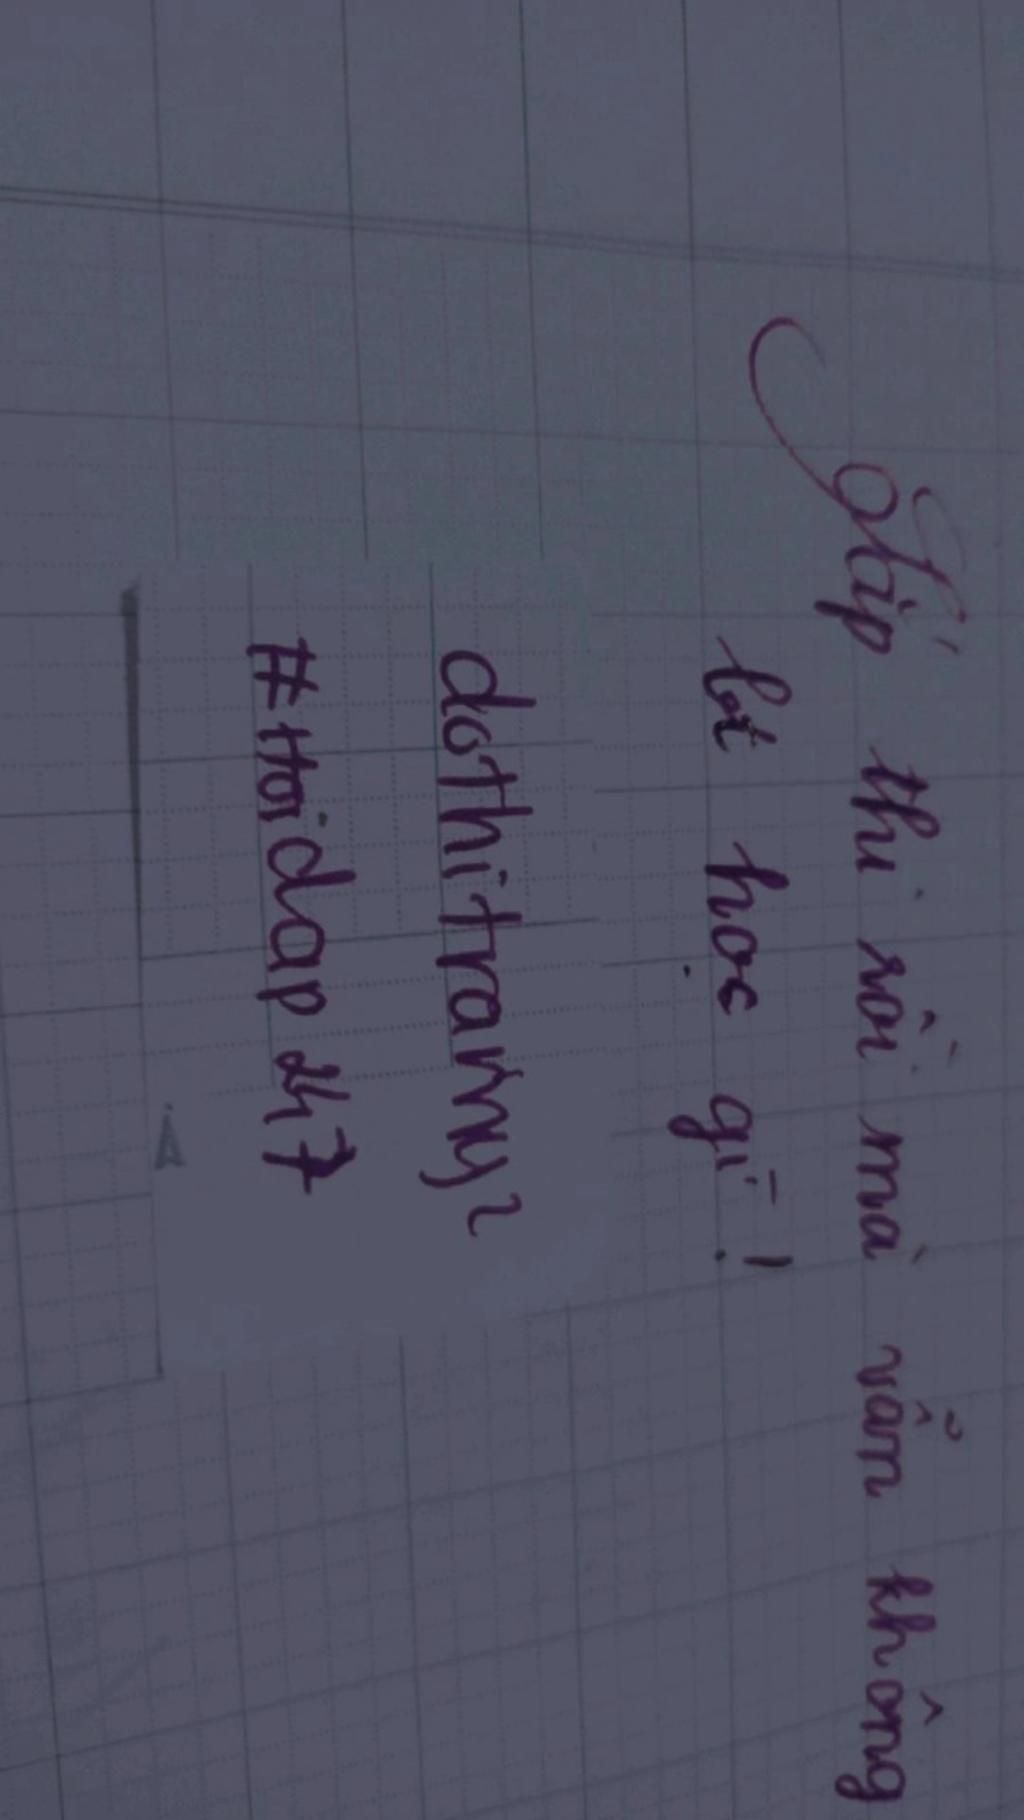 Sắp thi rồi mà vẫn không
bt học gì !
dothitramy2
#Hoidap247